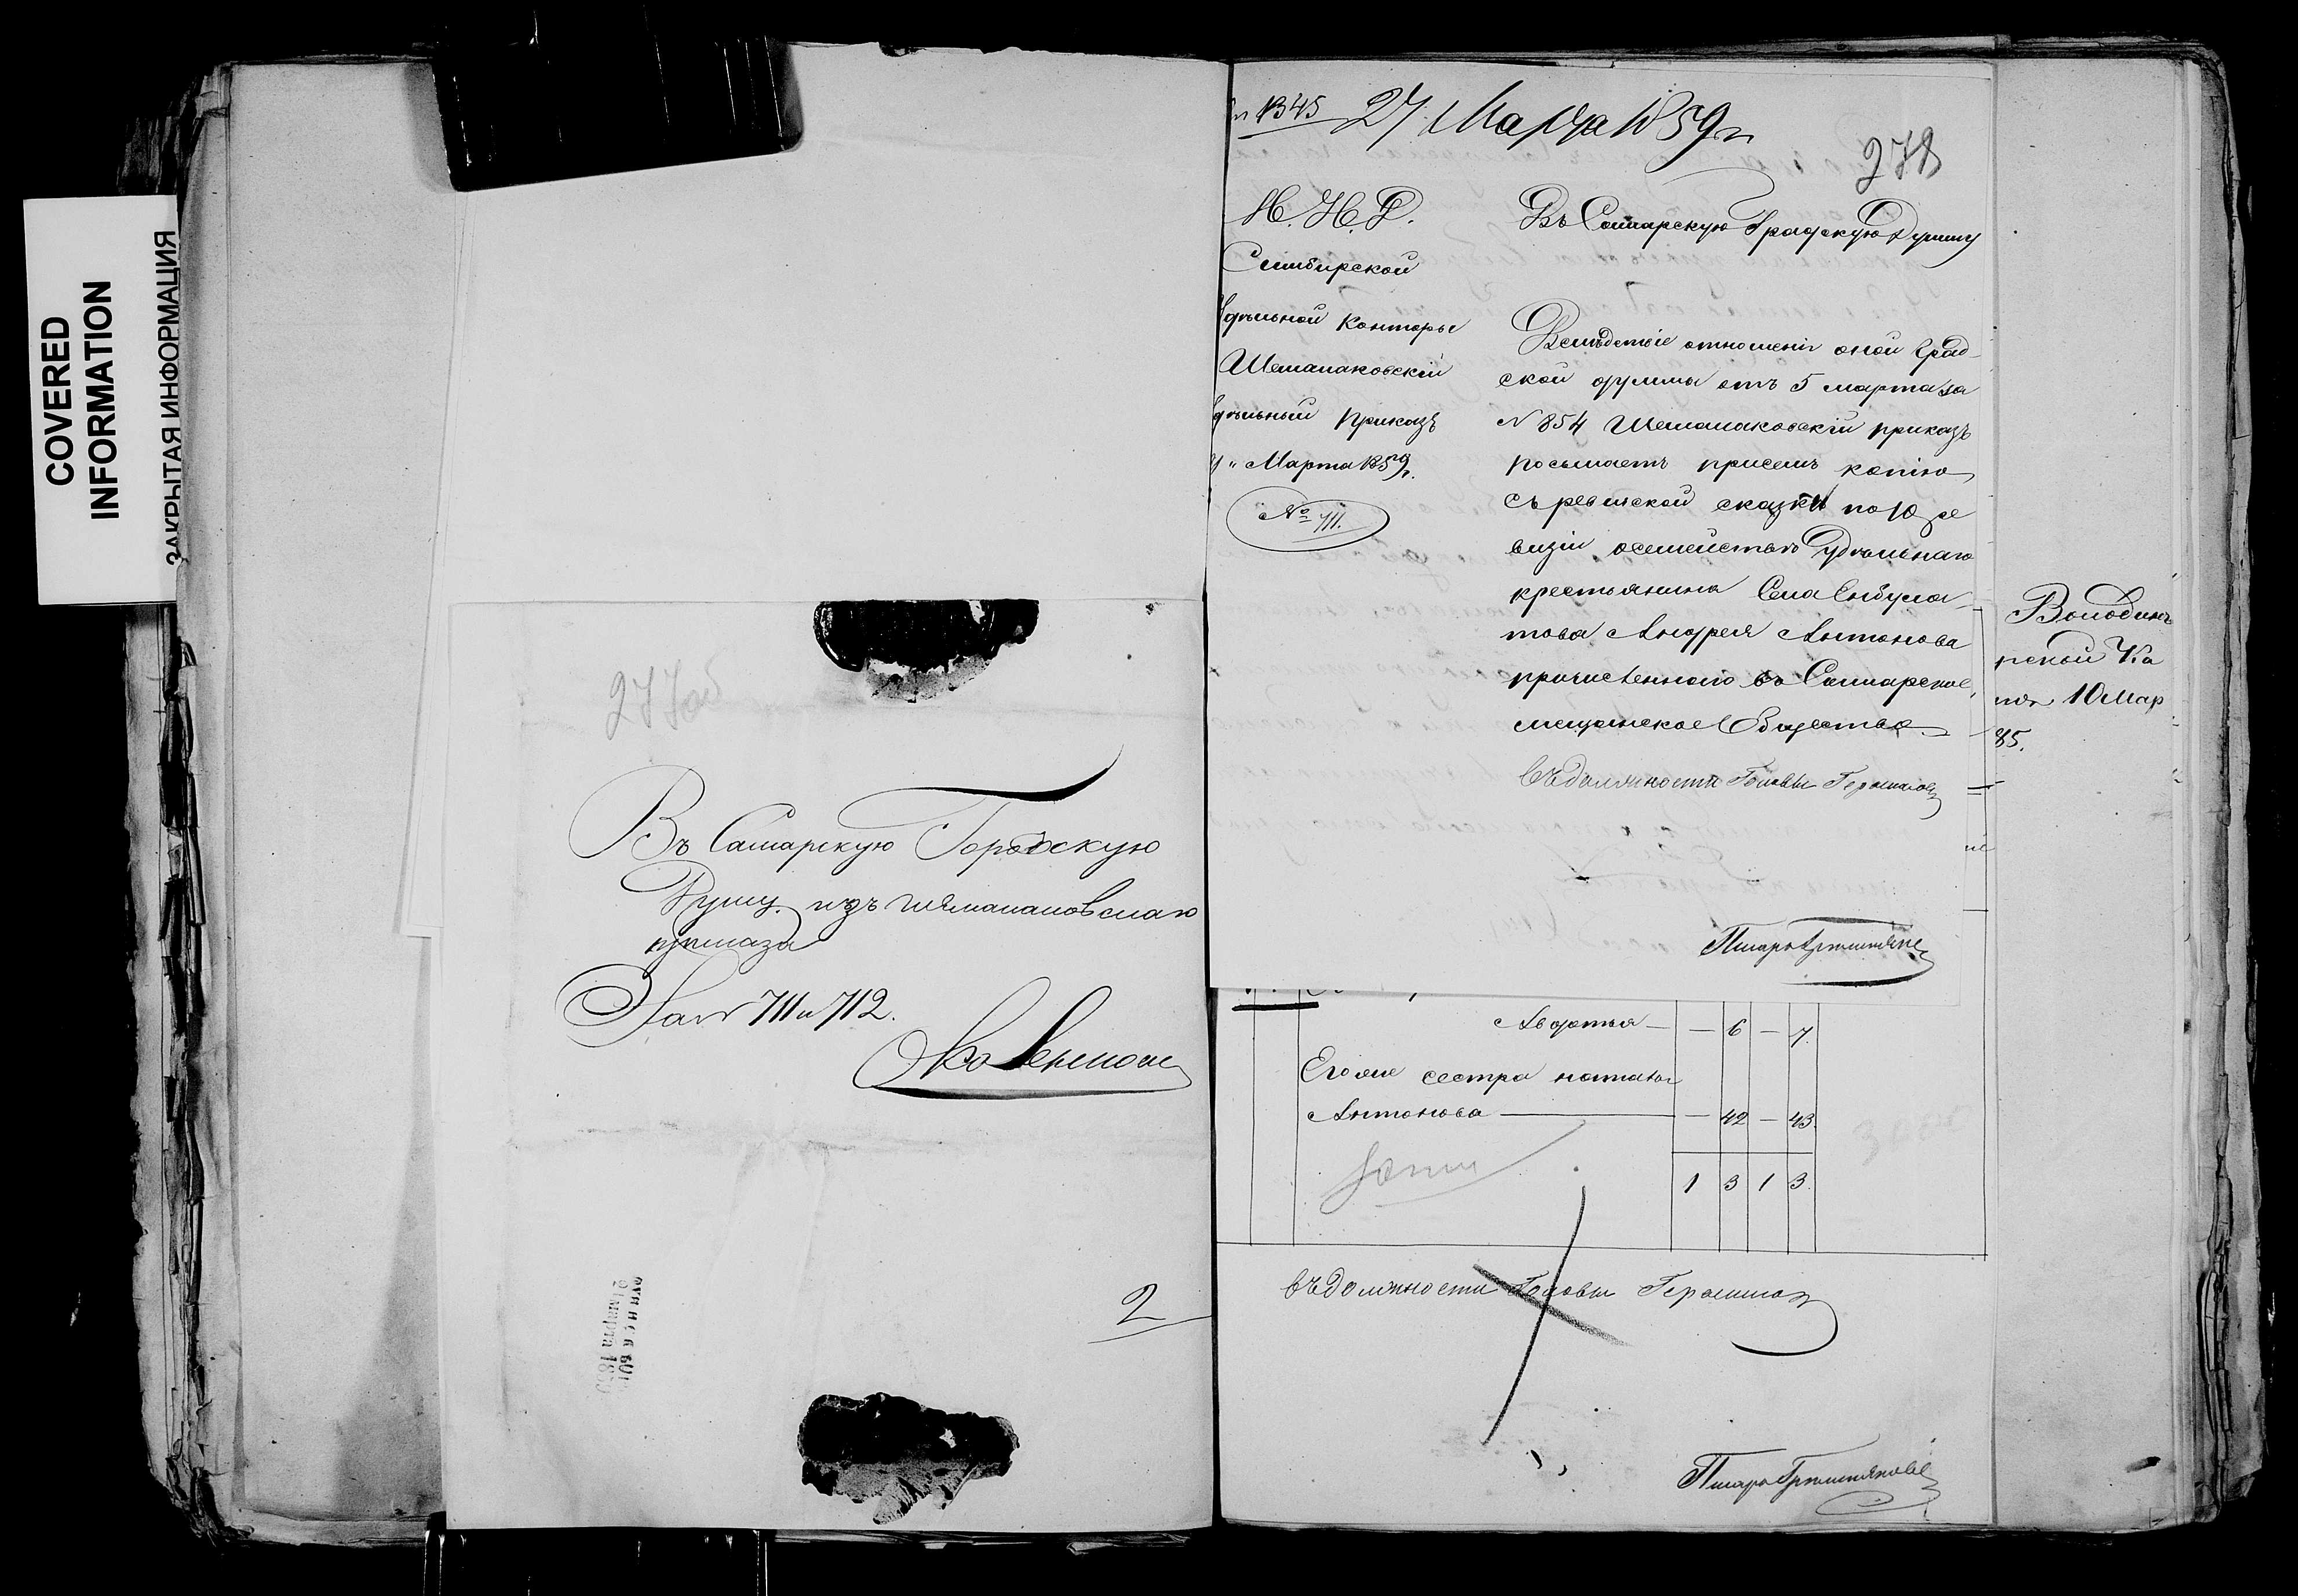 COVERED
INFORMATION
ЗАКРЫТАЯ ИНФОРМАЦИЯ
277об
Въ Самарскую Городскую
Думу. изъ Шемалаковскаго
приказа
За № 711 и 712.
2
№ 1345 27 Марта 1859 г
278
М. И. Д.
Симбирской
Удѣльной Конторы
Шемалаковскій
Удѣльный Приказъ
Марта 1859 г.
№ 711.
Въ Самарскую Градскую Думу
Вслѣдствіе отношенія оной Град-
ской думы отъ 5 марта за
№ 854 Шемалаковскій приказъ
посылаетъ присемъ копію
съ ревиской сказки по 10 ре
визіи осемействѣ Удѣльнаго
крестьянина Села Енбула-
това Андрея Антонова
причисленного въ Самарское
мещанское Общество
въ должности Головы Герасимов
Писарь
Авдотья — — 6 — 7.
Его же сестра наталья
Антонова — — 42 — 43.
1 3 1 3.
въ должности Головы Герасимов
Писарь
10 Мар
85.